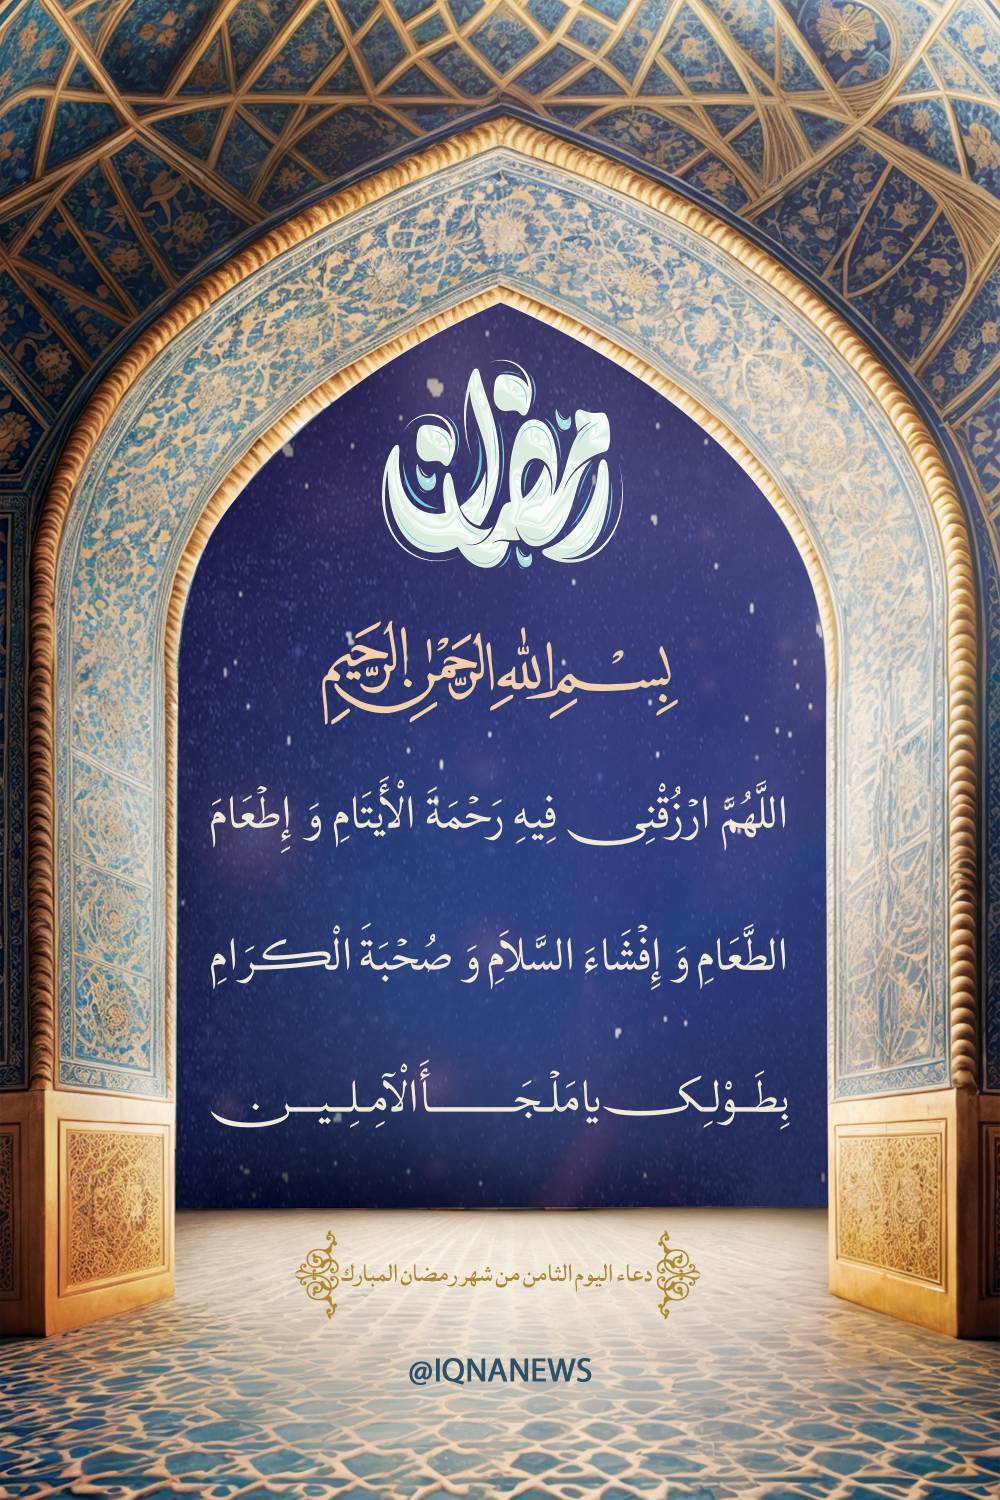 رمضان
بِسْمِ اللّٰهِ الرَّحْمٰنِ الرَّحِيمِ
اللَّهُمَّ ارْزُقْنِی فِيهِ رَحْمَةَ الْأَيْتَامِ وَ إِطْعَامَ
الطَّعَامِ وَ إِفْشَاءَ السَّلاَمِ وَ صُحْبَةَ الْكَرَامِ
بِطَوْلِک يا مَلْجَأَ الْآمِلِين
دعاء اليوم الثامن من شهر رمضان المبارك
@IQNANEWS